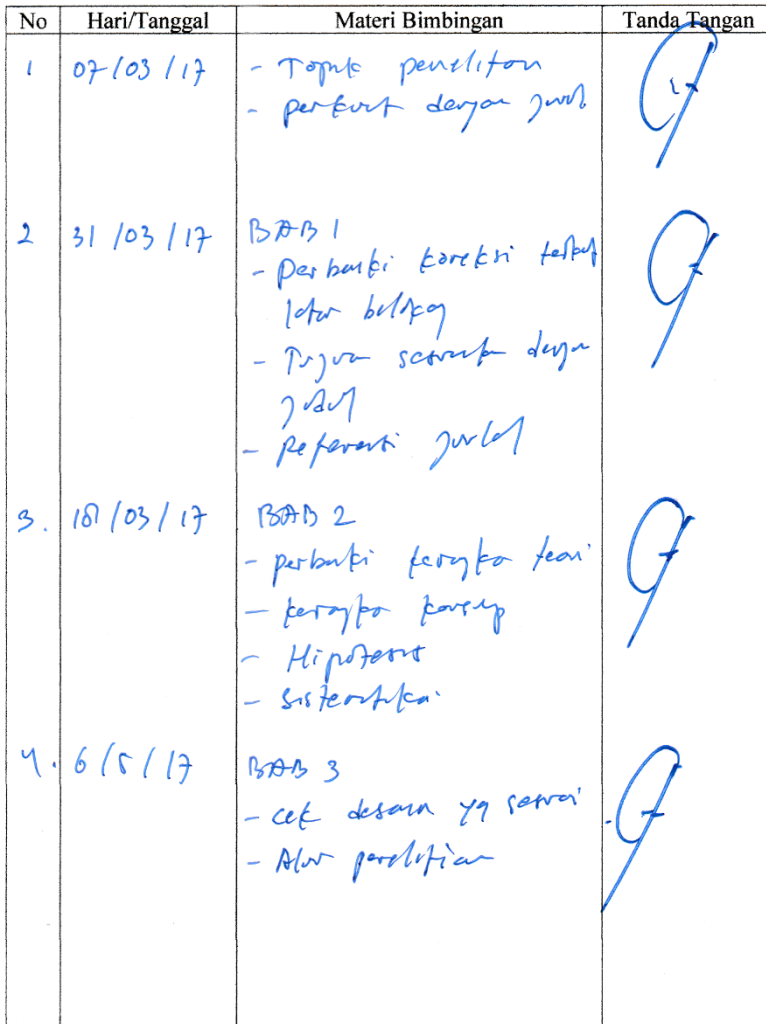 No Hari/Tanggal Materi Bimbingan Tanda Tangan
1 07/03/17 - Topik penelitian
- perkuat dengan jurnal
2 31/03/17 BAB 1
- Perbaiki koreksi terkait
latar belakang
- Tujuan sesuaikan dengan
judul
- Referensi jurnal
3. 18/03/17 BAB 2
- perbaiki kerangka teori
- kerangka konsep
- Hipotesis
- Sistematika
4. 6/5/17 BAB 3
- cek desain yg sesuai
- Alur penelitian